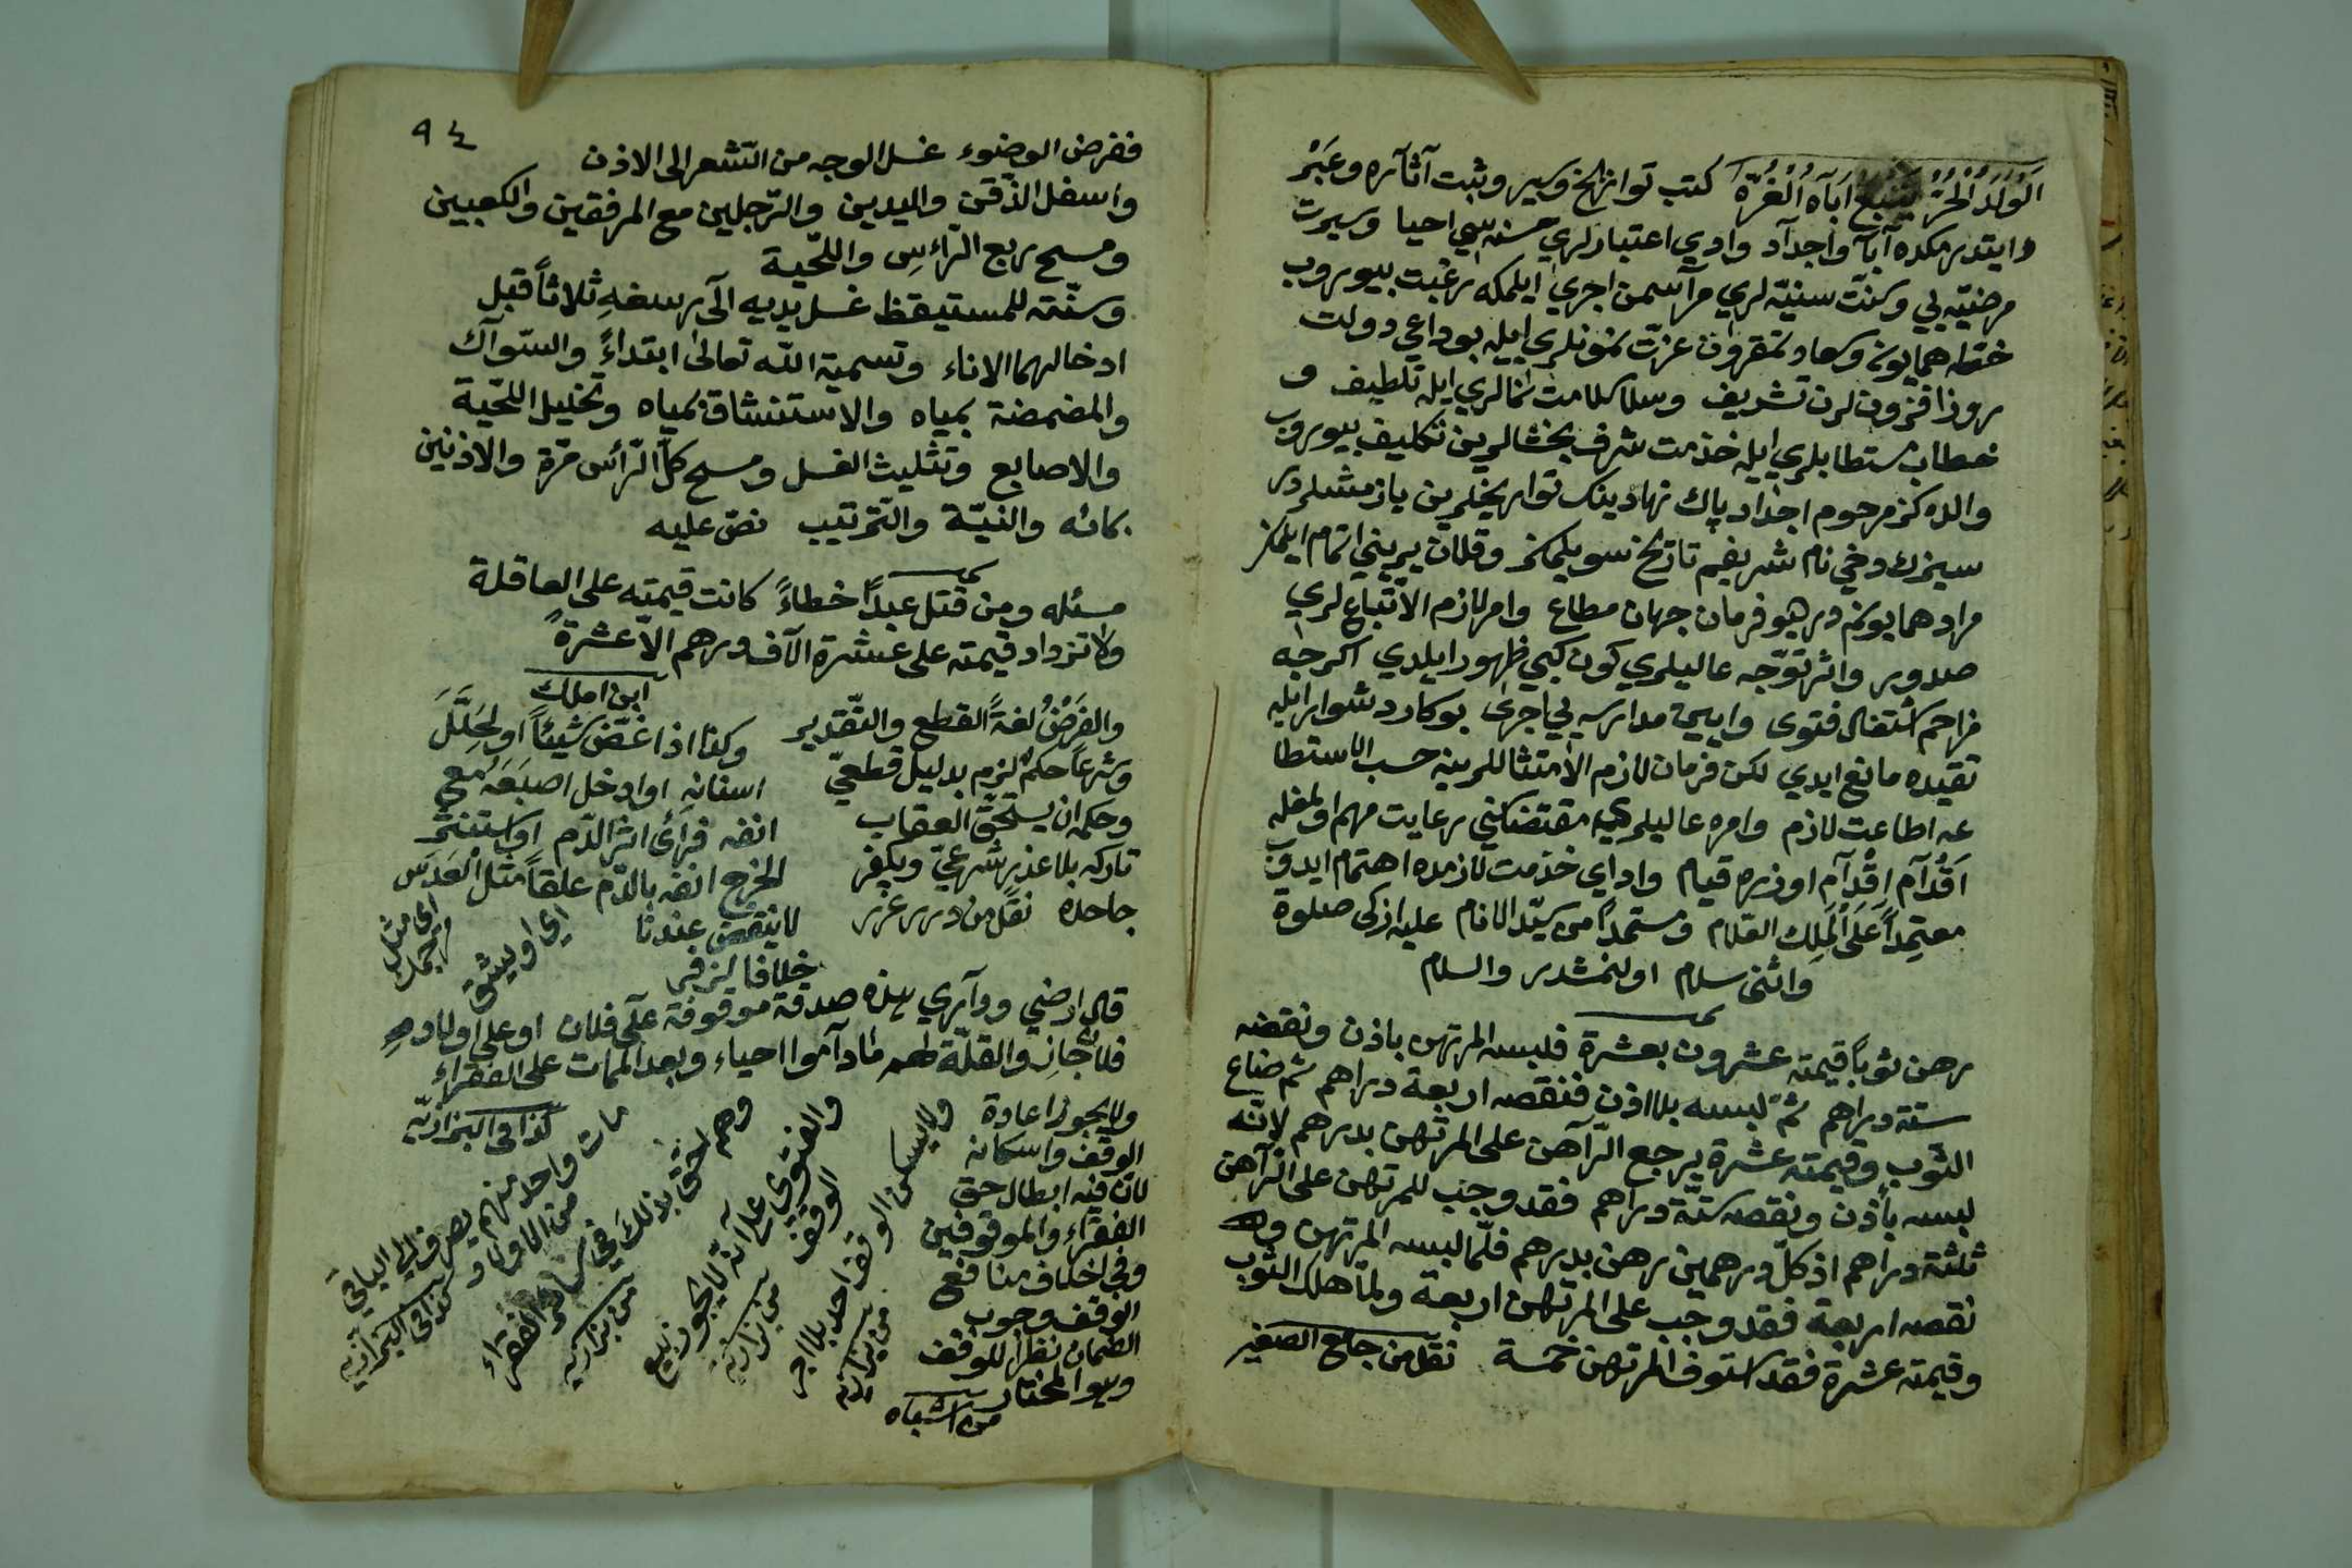 اَلْوَلَدُ الْحُرُّ يَتَّبِعُ آبَاۤءَهُ الْغُرَّهْ كتب تواريخ وسير وثبت آثار وعبر
وايتدرمكده آبا واجداد وادي اعتبارلري حسنه سي احيا وسيرت
مرضيّه يي وسنّت سنيّه لري مراسمن اجري ايلمكه رغبت بيوروب
خط همايون وسعادتمقرون عزت نمونلري ايله بوداعي دولت
روز افزونلرن تشريف وسلام سلامت انمالري ايله تلطيف و
خطاب مستطابلري ايله خدمت شرف بخشالرين تكليف بيوروب
والده كز مرحوم اجداد پاك نهادينك تواريخلرين يازمشلردر
سيزك دخي نام شريفم تاريخ سويلمكز وقلان يريني اتمام ايلمكز
مراد همايونمدر ديو فرمان جهان مطاع وامر لازم الاتّباع لري
صدور واثر توجّه عاليلري كون كبي ظهور ايلدي اكرچه
مزاحم اشتغال فتوى وايپحه مدارسه يي اجرى بوكار دشوار ايله
تقيده مانع ايدي لكن فرمان لازم الامتثاللرينه حسب الاستطا
عه اطاعت لازم وامره عاليلري مقتضاسني رعايت مهم اولمغله
اَقْدَام اِقْدَام اوزره قيام واداي خدمت لازمده اهتمام ايدوب
معتمِداً عَلَى الْمَلِك العلام ومستمداً من سيّد الانام عليه ازكى صلوة
واثنى سلام اولنمشدر والسلام
رهن ثوباً قيمته عشرون بعشرة فلبسه المرتهن باذن ونقصه
ستة دراهم ثمّ لبسه بلا اذن فنقصه اربعة دراهم ثم ضاع
الثوب وقيمته عشرة يرجع الرّاهن على المرتهن بدرهم لانّه
لبسه باذن ونقصه ستّة دراهم فقد وجب للمرتهن على الراهن
ثلثة دراهم اذ كلّ درهمين رهن بدرهم فلمّا لبسه المرتهن و
نقصه اربعة فقد وجب على المرتهن اربعة ولمّا هلك الثوب
وقيمته عشرة فقد استوف المرتهن خمسة نقل من جامع الصغير
٩٤
ففرض الوضوء غسل الوجه من الشعر الى الاذن
واسفل الذّقن واليدين والرّجلين مع المرفقين والكعبين
ومسح ربع الرّاءس واللّحية
وسنّته للمستيقظ غسل يديه الى رسغه ثلاثاً قبل
ادخالهما الاناء وتسمية الله تعالى ابتداءً والسّواك
والمضمضة بمياه والاستنشاق بمياه وتخليل اللّحية
والاصابع وتثليث الغسل ومسح كلّ الرّأس مرّة والاذنين
بمائه والنيّة والترتيب نصّ عليه
مسئله ومن قتل عبداً خطاءً كانت قيمته على العاقلة
ولا تزداد قيمته على عشرة الآف درهم الاّ عشرة
ابن املك
والفَرْضُ لغةً القطع والتّقدير
وشرعاً حكم لزم بدليل قطعيّ
وحكمه ان يستحقّ العقاب
تاركه بلا عذر شرعيّ ويكفر
جاحده نقل من درر غرر
وكذا اذا عَضّ شيئاً او تخلّل
اسنانه او ادخل اصبعَه مع
انفه فرأى اثر الدّم او استنثر
الخرج انفه بالدّم علقاً مثل العدس
لا ينقض عندنا
خلافا لزفر
اي او يشق
اى مثل
مرجمك
قال ارضي وداري هذه صدقة موقوفة على فلان او على اولاد
فلان جاز والغلّة لهم ماداموا احياء وبعد الممات على الفقراء
كذا في البزازيّه
ولا يجوز اعادة
الوقف واسكانه
لانّ فيه ابطال حق
الفقراء والموقوفين
وفي اخلاف منافع
الوقف وجوب
الضمان نظراً للوقف
وهو المختار
من اشباه
ولا يسكن الوقف احد بلا اجر
من بزازيّه
والفتوى على انّه لا يجوز بيع
الوقف من بزازيّه
وهم احقّ بذلك في سائر الفقراء
من بزازيه
مات واحد منهم يصرف الى الباقي
من الاولاد كذا في البزازيه